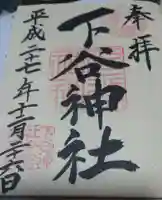 奉拝
下谷神社
平成二十七年十二月二十六日